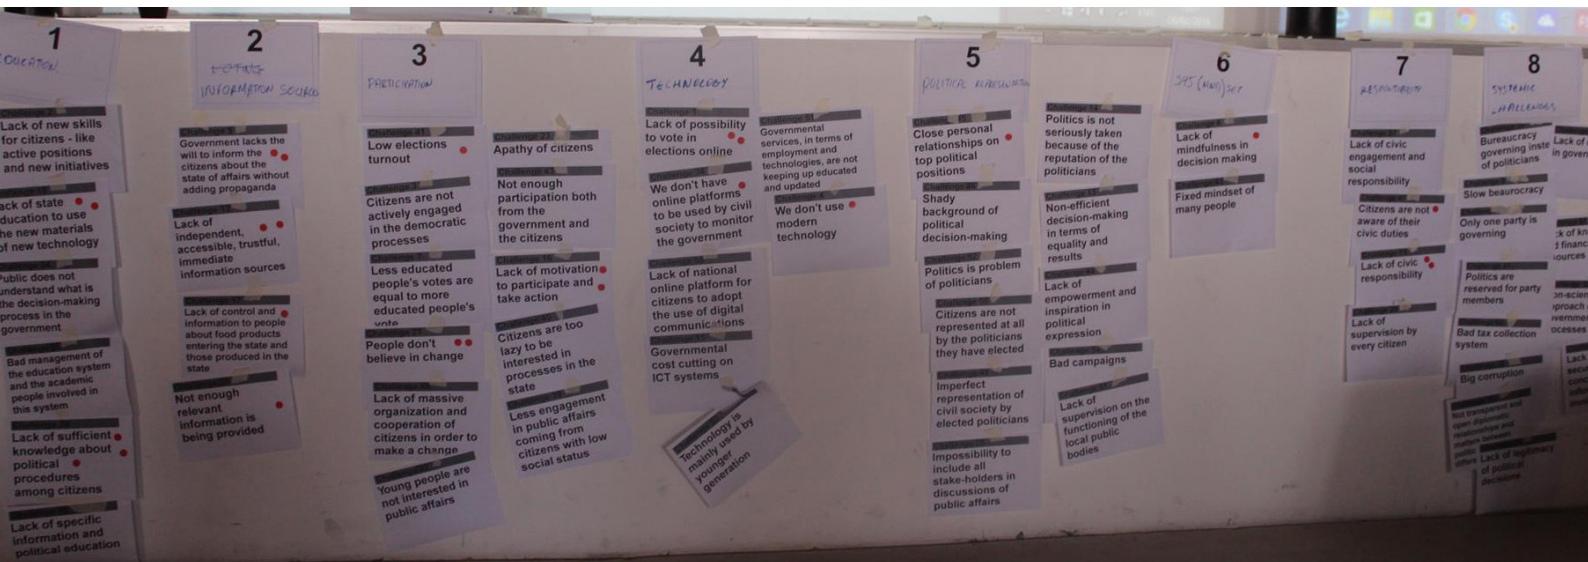 1
EDUCATION
Challenge 2
Lack of new skills
for citizens - like
active positions
and new initiatives
Lack of state
education to use
the new materials
of new technology
Public does not
understand what is
the decision-making
process in the
government
Bad management of
the education system
and the academic
people involved in
this system
Lack of sufficient
knowledge about
political
procedures
among citizens
Lack of specific
information and
political education
2
VOTING
INFORMATION SOURCES
Government lacks the
will to inform the
citizens about the
state of affairs without
adding propaganda
Lack of
independent,
accessible, trustful,
immediate
information sources
Lack of control and
information to people
about food products
entering the state and
those produced in the
state
Not enough
relevant
information is
being provided
3
PARTICIPATION
Challenge 41
Low elections
turnout
Citizens are not
actively engaged
in the democratic
processes
Less educated
people's votes are
equal to more
educated people's
vote
People don't
believe in change
Lack of massive
organization and
cooperation of
citizens in order to
make a change
Young people are
not interested in
public affairs
Challenge 23
Apathy of citizens
Challenge 43
Not enough
participation both
from the
government and
the citizens
Lack of motivation
to participate and
take action
Citizens are too
lazy to be
interested in
processes in the
state
Less engagement
in public affairs
coming from
citizens with low
social status
4
TECHNOLOGY
Lack of possibility
to vote in
elections online
We don't have
online platforms
to be used by civil
society to monitor
the government
Lack of national
online platform for
citizens to adopt
the use of digital
communications
Governmental
cost cutting on
ICT systems
Technology is
mainly used by
younger
generation
Governmental
services, in terms of
employment and
technologies, are not
keeping up educated
and updated
We don't use
modern
technology
5
POLITICAL REPRESENTATION
Close personal
relationships on
top political
positions
Shady
background of
political
decision-making
Politics is problem
of politicians
Citizens are not
represented at all
by the politicians
they have elected
Imperfect
representation of
civil society by
elected politicians
Impossibility to
include all
stake-holders in
discussions of
public affairs
Politics is not
seriously taken
because of the
reputation of the
politicians
Non-efficient
decision-making
in terms of
equality and
results
Lack of
empowerment and
inspiration in
political
expression
Bad campaigns
Lack of
supervision on the
functioning of the
local public
bodies
6
SYS(MIND)SET
Lack of
mindfulness in
decision making
Fixed mindset of
many people
7
RESPONSIBILITY
Lack of civic
engagement and
social
responsibility
Citizens are not
aware of their
civic duties
Lack of civic
responsibility
Lack of
supervision by
every citizen
8
SYSTEMIC
CHALLENGES
Bureaucracy
governing inste
of politicians
Slow beurocracy
Only one party is
governing
Politics are
reserved for party
members
Bad tax collection
system
Big corruption
Not transparent and
open diplomatic
relationships and
matters between
Lack of legitimacy
of political
decisions
Lack of
in govern